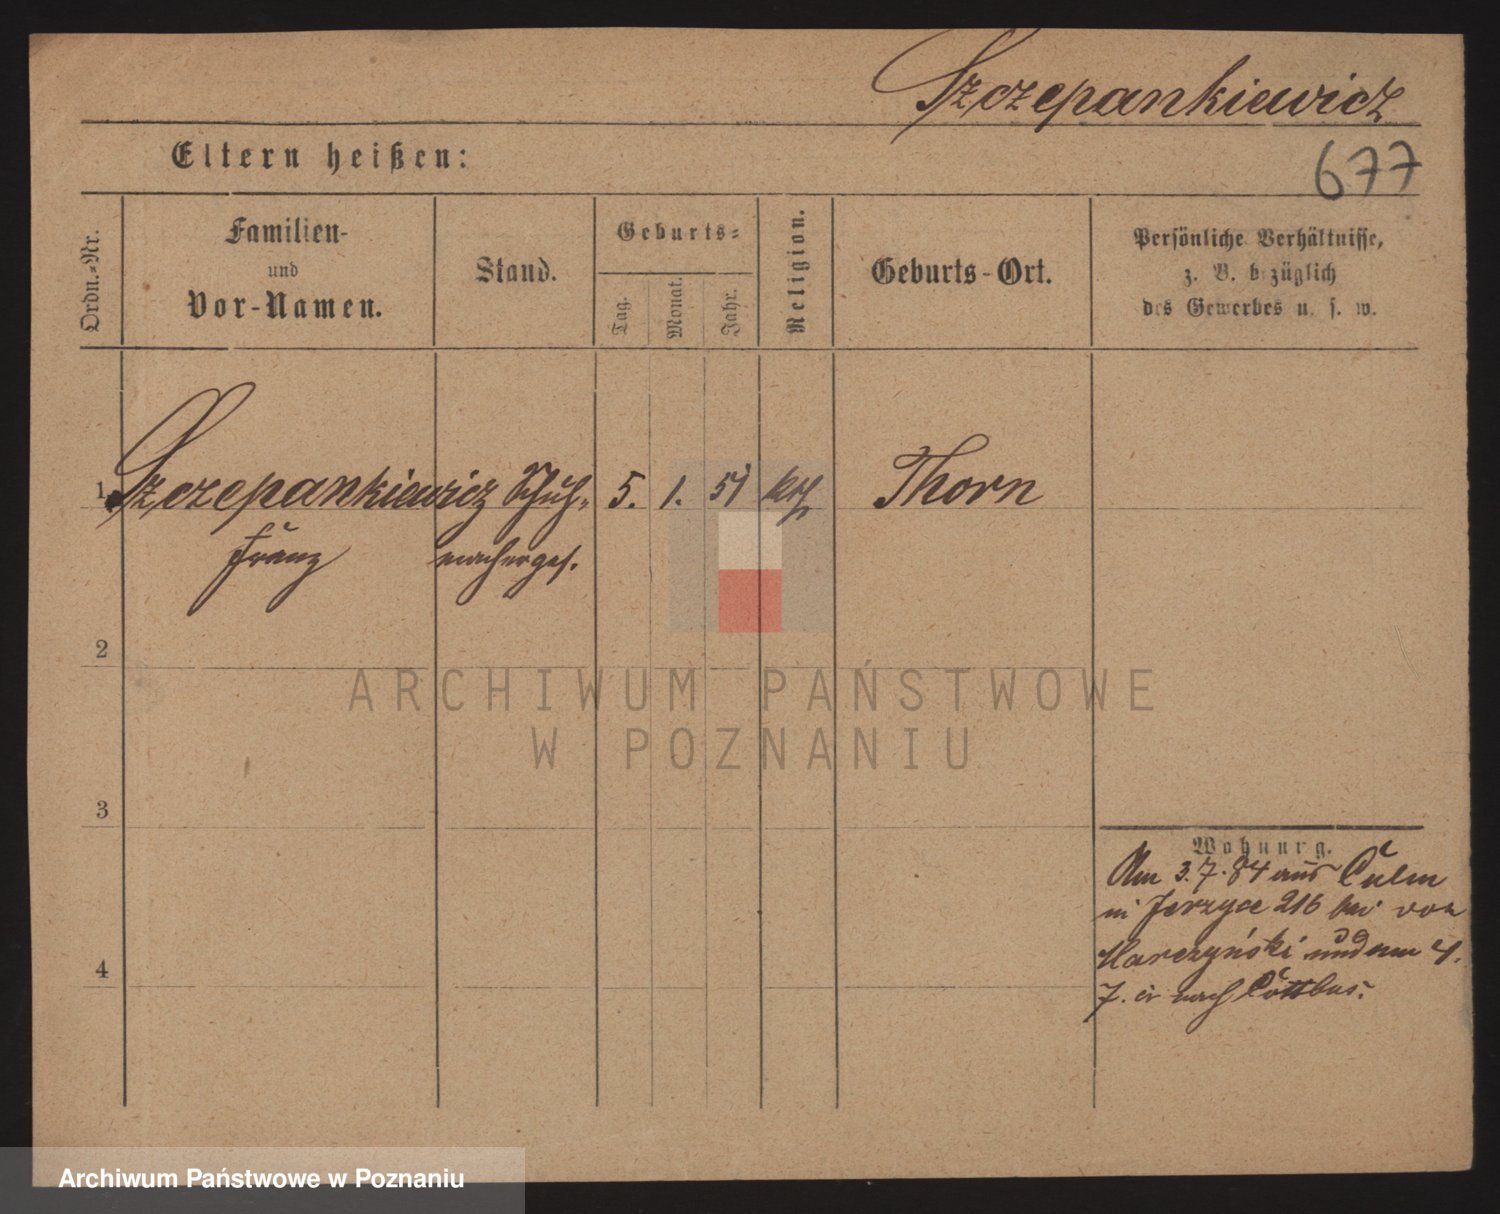 Szczepankiewicz
Eltern heißen:
677
Ordn.-Nr.
Familien-
und
Vor-Namen.
Stand.
Geburts-
Tag.
Monat.
Jahr.
Religion.
Geburts-Ort.
Persönliche Verhältnisse,
z. B. bezüglich
des Gewerbes u. s. w.
1 Szczepankiewicz Schuh- 5. 1. 51 kth Thorn
Franz machergес.
2
3
4
Wohnung.
Am 3.7.84 aus Culm
in Jerzyce 216 bei von
Marczyński und am 4.
7. cr nach Cottbus.
ARCHIWUM PAŃSTWOWE
W POZNANIU
Archiwum Państwowe w Poznaniu